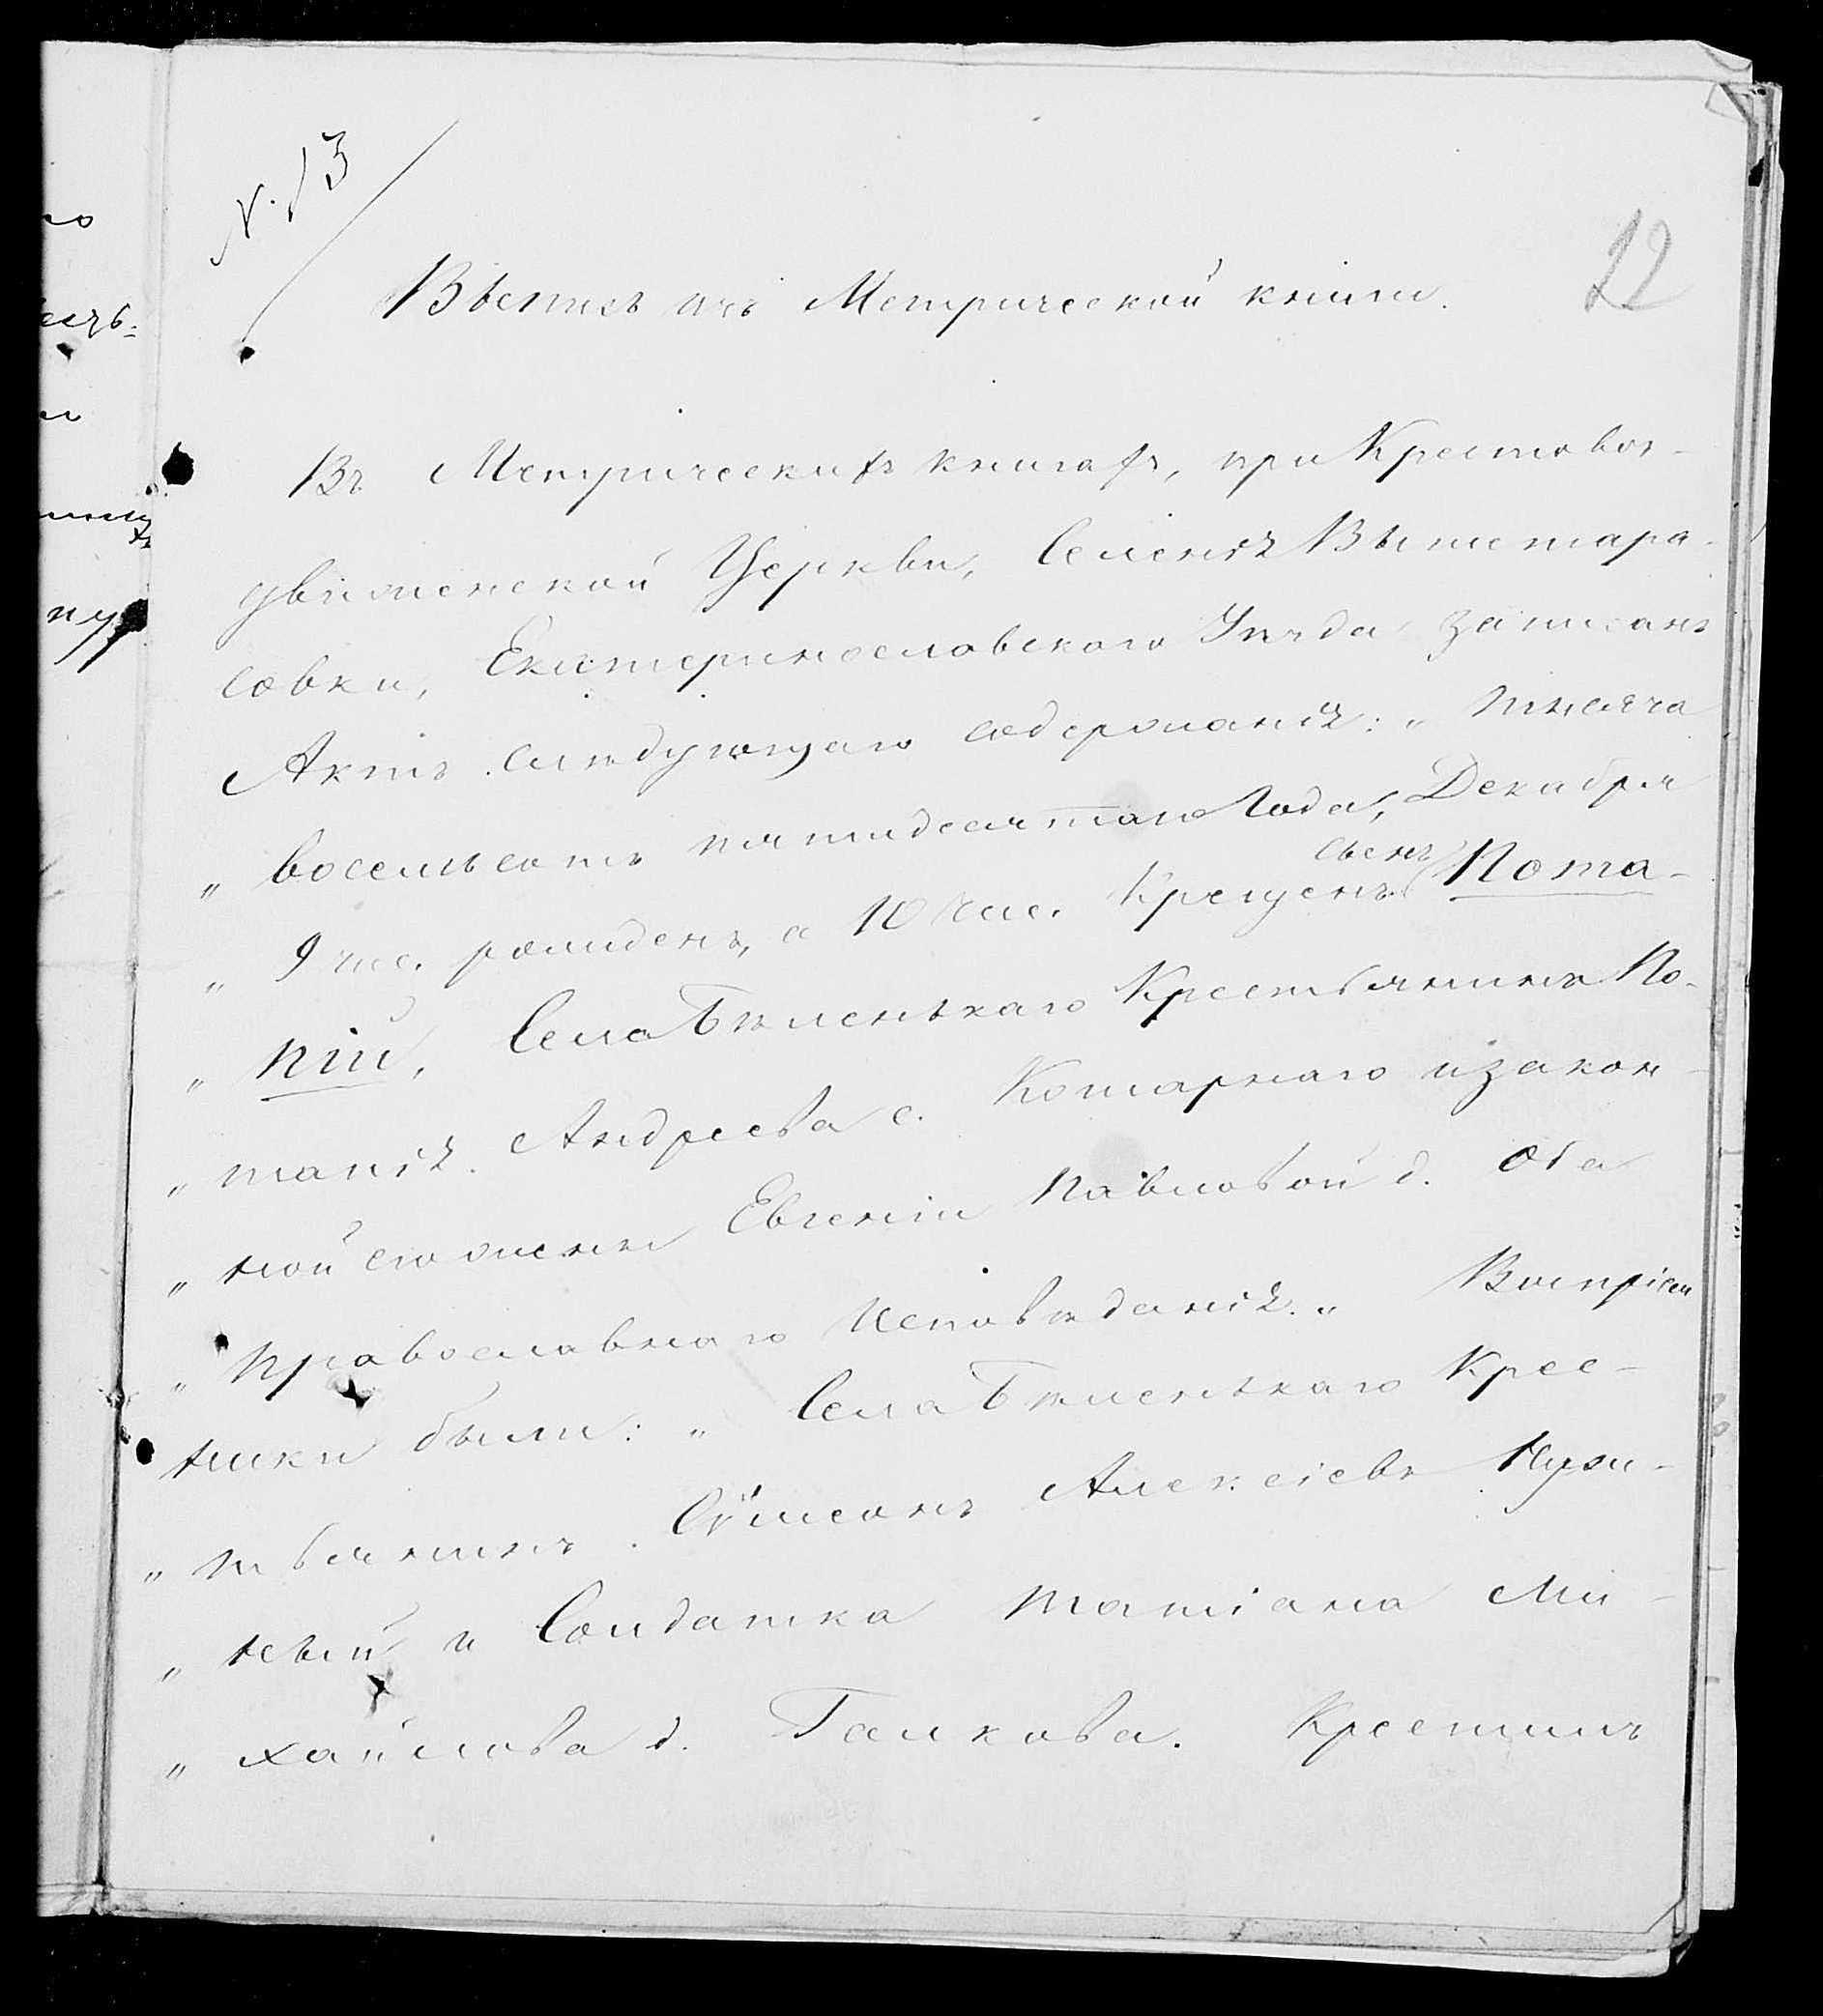 N. 13
22
Выпись изъ Метрической книги.
Въ Метрическихъ книгахъ, при Крестовоз-
движенской Церкви, Селенія Вышетара-
совки, Екатеринославскаго Уѣзда записанъ
Актъ слѣдующаго содержанія: „ тысяча
„ восемьсотъ пятидесятаго Года, Декабря
сынъ
„ 9 чис. рожиденъ, а 10 чис. Крещенъ Пота-
„ пій, Села Бѣленькаго Крестьянина По-
„ тапія Андреева с. Комарнаго и закон-
„ ной его жены Евгеніи Павловой д. Оба
„ Православнаго Исповѣданія. „ Воспріем
ники были: „ Села Бѣленькаго Крес-
„ тьянинъ Сѵмеонъ Алексіевъ Нуж-
„ ный и Солдатка Татіана Ми-
„ хайлова д. Галкова. Крестилъ